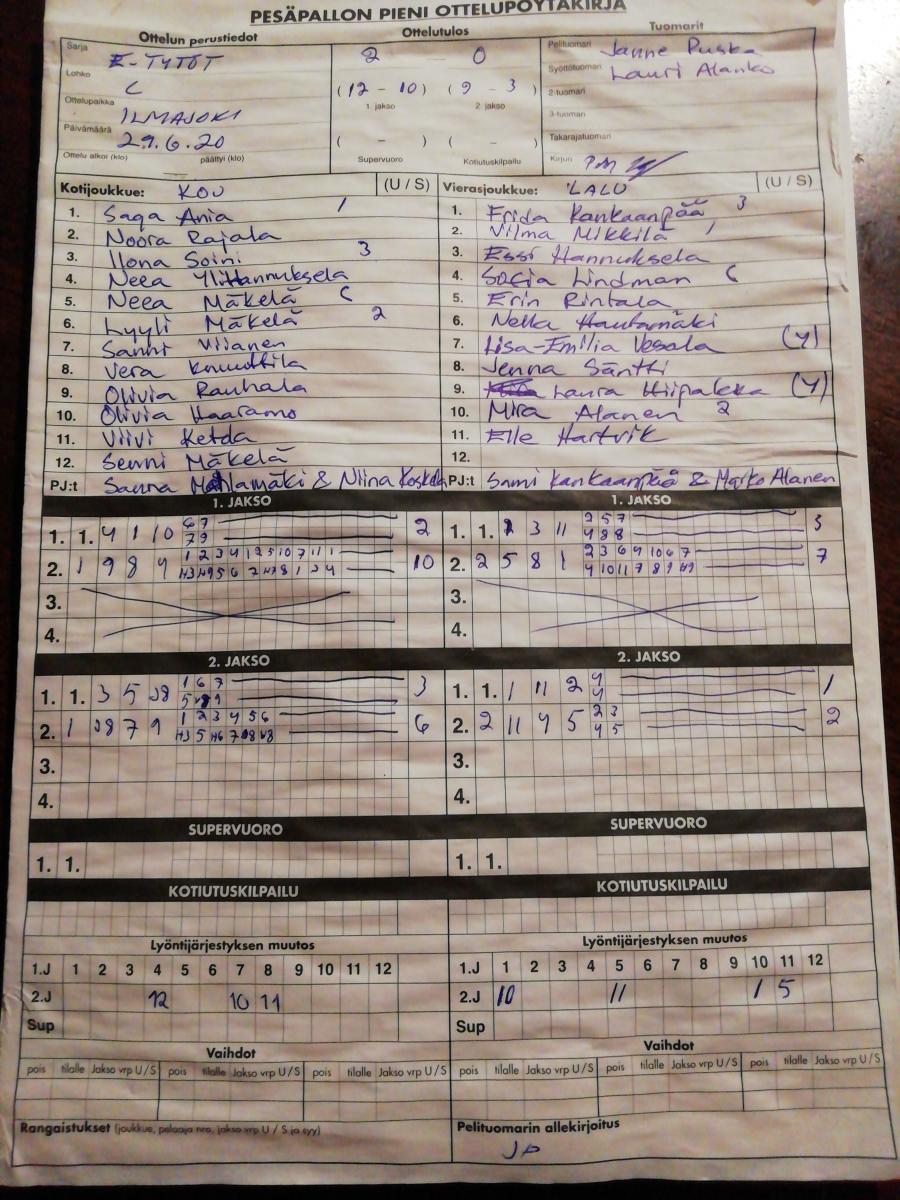 PESÄPALLON PIENI OTTELUPÖYTÄKIRJA
Ottelun perustiedot
Ottelutulos
Tuomarit
Sarja
E-TYTÖT
2 0
Pelituomari Janne Puska
Lohko
C
(12 - 10) (9 - 3)
Syöttötuomari Lauri Alanko
1. jakso 2. jakso
2-tuomari
Ottelupaikka
ILMAJOKI
3-tuomari
Päivämäärä
29.6.20
( - ) ( - )
Takarajatuomari
Ottelu alkoi (klo) päättyi (klo)
Supervuoro Kotiutuskilpailu
Kirjuri PM
Kotijoukkue: KOU (U / S)
1. Saga Ania 1
2. Noora Rajala
3. Ilona Soini 3
4. Neea Ylihannuksela
5. Neea Mäkelä C
6. Lyyli Mäkelä 2
7. Sanni Viianen
8. Vera Knuuttila
9. Olivia Rauhala
10. Olivia Haaramo
11. Viivi Ketda
12. Senni Mäkelä
PJ:t Sanna & Niina Koskela
Vierasjoukkue: LALU (U / S)
1. Frida Kankaanpää 3
2. Vilma Mikkilä 1
3. Essi Hannuksela
4. Sofia Lindman C
5. Erin Rintala
6. Nella Hautamäki
7. Lisa-Emilia Vesala (Y)
8. Jenna Säntti
9. Laura Hiipakka (Y)
10. Mira Alanen 2
11. Elle Hartvik
12.
PJ:t Sami Kankaanpää & Marko Alanen
1. JAKSO
1. 1. 4 1 10 6 7 2
7 9
2. 1 9 8 4 10
3.
4.
1. JAKSO
1. 1. 2 3 11 2 5 7 3
4 8 8
2. 2 5 8 1 2 3 6 9 10 6 7 7
4 10 11 7 8 9
3.
4.
2. JAKSO
1. 1. 3 5 1 6 7 3
2. 1 7 9 1 2 3 4 5 6 6
3.
4.
2. JAKSO
1. 1. 1 11 2 4 1
4
2. 2 11 4 5 2 3 2
4 5
3.
4.
SUPERVUORO
1. 1.
SUPERVUORO
1. 1.
KOTIUTUSKILPAILU
KOTIUTUSKILPAILU
Lyöntijärjestyksen muutos
1.J 1 2 3 4 5 6 7 8 9 10 11 12
2.J 12 10 11
Sup
Lyöntijärjestyksen muutos
1.J 1 2 3 4 5 6 7 8 9 10 11 12
2.J 10 11 1 5
Sup
Vaihdot
pois tilalle Jakso vrp U / S pois tilalle Jakso vrp U / S pois tilalle Jakso vrp U / S
Vaihdot
pois tilalle Jakso vrp U / S pois tilalle Jakso vrp U / S pois tilalle Jakso vrp U / S
Rangaistukset (joukkue, pelaaja nro, jakso vrp U / S ja syy)
Pelituomarin allekirjoitus
JP